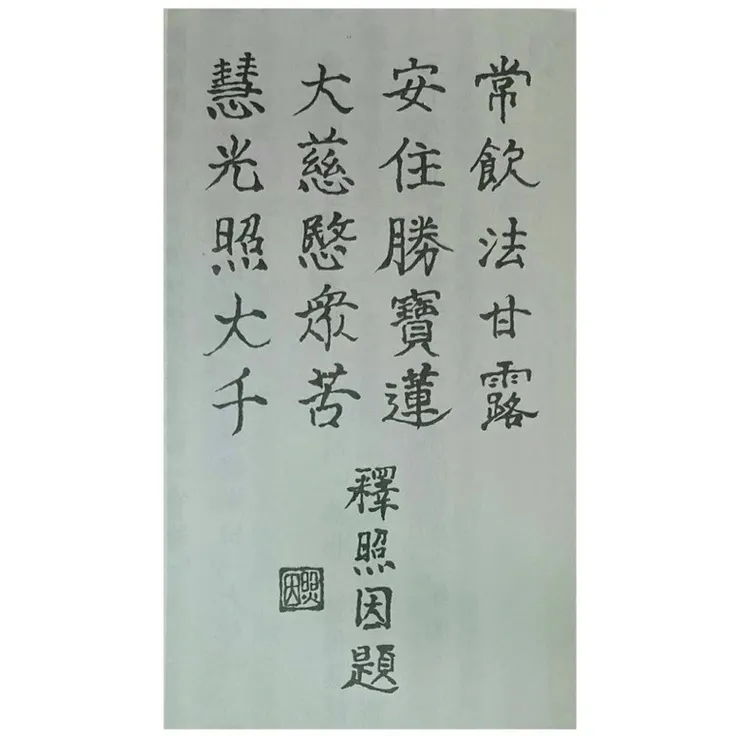 常飲法甘露
安住勝寶蓮
大慈愍衆苦
慧光照大千
釋照因題
照因